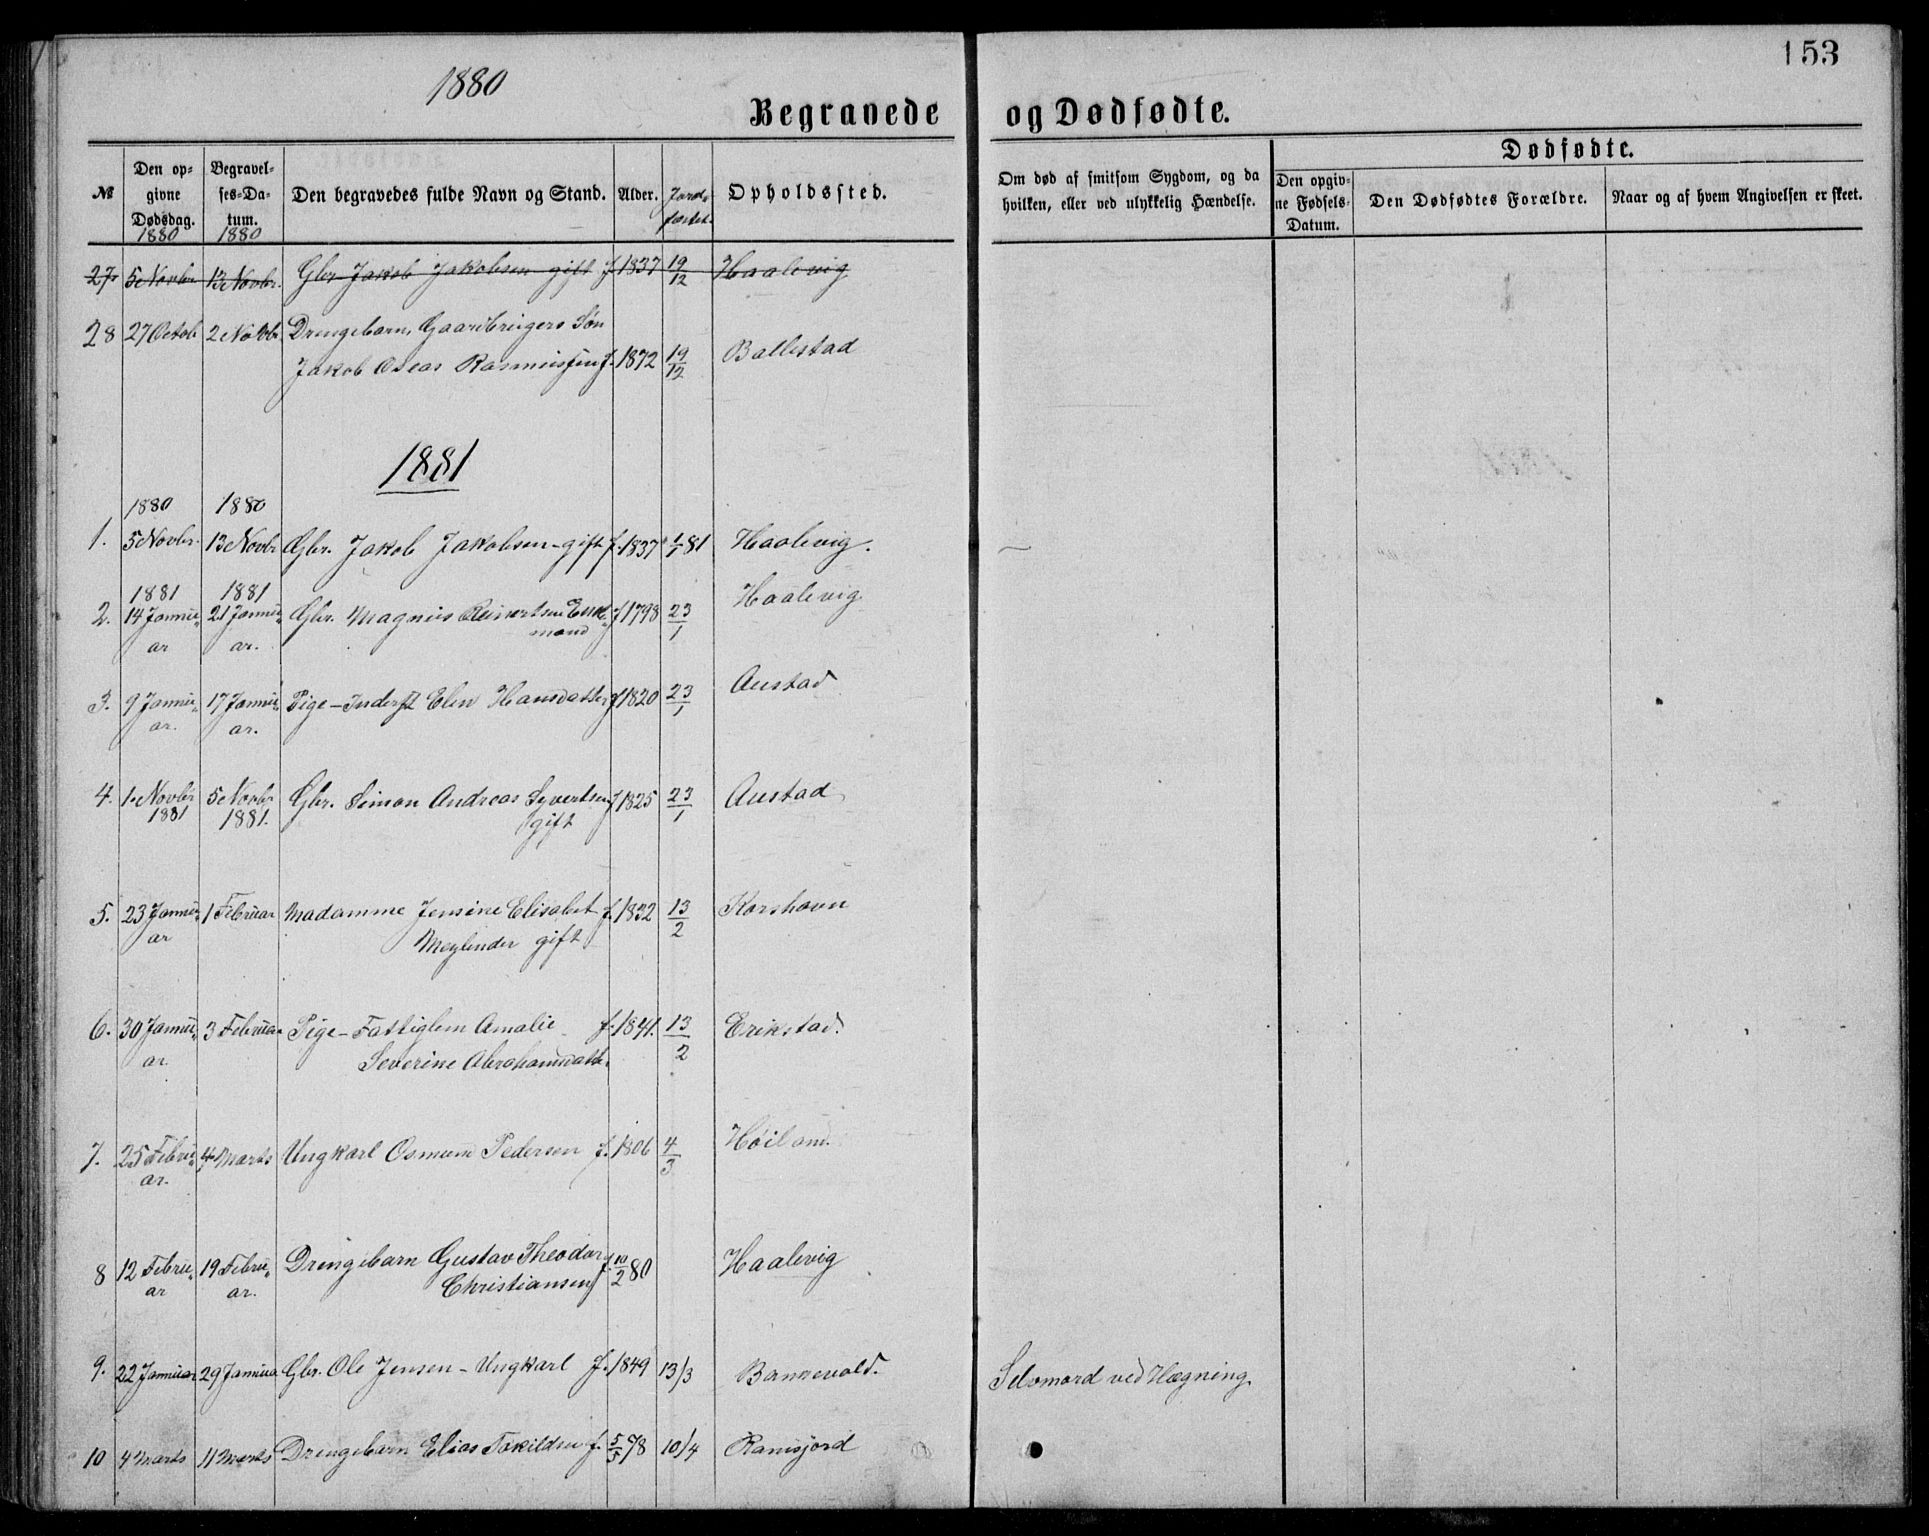 153
1880
Begravede og Dødfødte.
№ Den opgivne Dødsdag. Begravelses-Datum. Den begravedes fulde Navn og Stand. Alder. Jordfæstet. Opholdssted. Om død af smitsom Sygdom, og da hvilken, eller ved ulykkelig Hændelse.
Dødfødte.
Den opgivne Fødsels-Datum. Den Dødfødtes Forældre. Naar og af hvem Angivelsen er skeet.
1880 1880
27 5 Novbr. 13 Novbr. Gbr Jakob Jakobsen gift f 1837 19/12 Haalevig
28 27 Octob 2 Novbr. Drengebarn, Gaardbrugers Søn
Jakob Oseas Rasmussen f. 1872 19/12 Ballestad
1881
1880 1880
1. 5 Novbr. 13 Novbr Gbr. Jakob Jakobsen - gift f. 1837 1/1 81 Haalevig. —
1881 1881
2. 14 Janu„ 21 Janu„ Gbr. Magnus Reiertsen Enke„ f 1798 23/1 Haalevig
ar ar. mand
3. 9 Janu„ 17 Janu„ Pige - Inderst Elen Hansdatter f 1820 23/1 Austad
ar. ar.
4. 1. Novbr 5 Novbr Gbr. Simon Andreas Syvertsen f 1825 23/1 Austad
1881 1881. gift
5. 23 Janu„ 1 Februar Madamme Jensine Elisabet f. 1832 13/2 Korshavn
ar Meylender gift
6. 30 Janu„ 3 Februar Pige - Fattiglem Amalie f. 1841. 13/2 Erikstad.
ar Severine Abrahamsdatter.
7. 25 Febru„ 4 Marts Ungkarl Osmund Pedersen f. 1806 4/3 Høiland.
ar.
8 12 Febru„ 19 Febru„ Drengebarn Gustav Theodor f. 10/2 80 Haalevig
ar ar. Christiansen
9. 22 Januar 29 Janua Gbr. Ole Jensen - Ungkarl f. 1849 13/3 Bannevold. Selvmord ved Hægning.
10 4 Marts 11 Marts Drengebarn Elias Tokildsen f. 5/5 78 10/4 Ramsjord